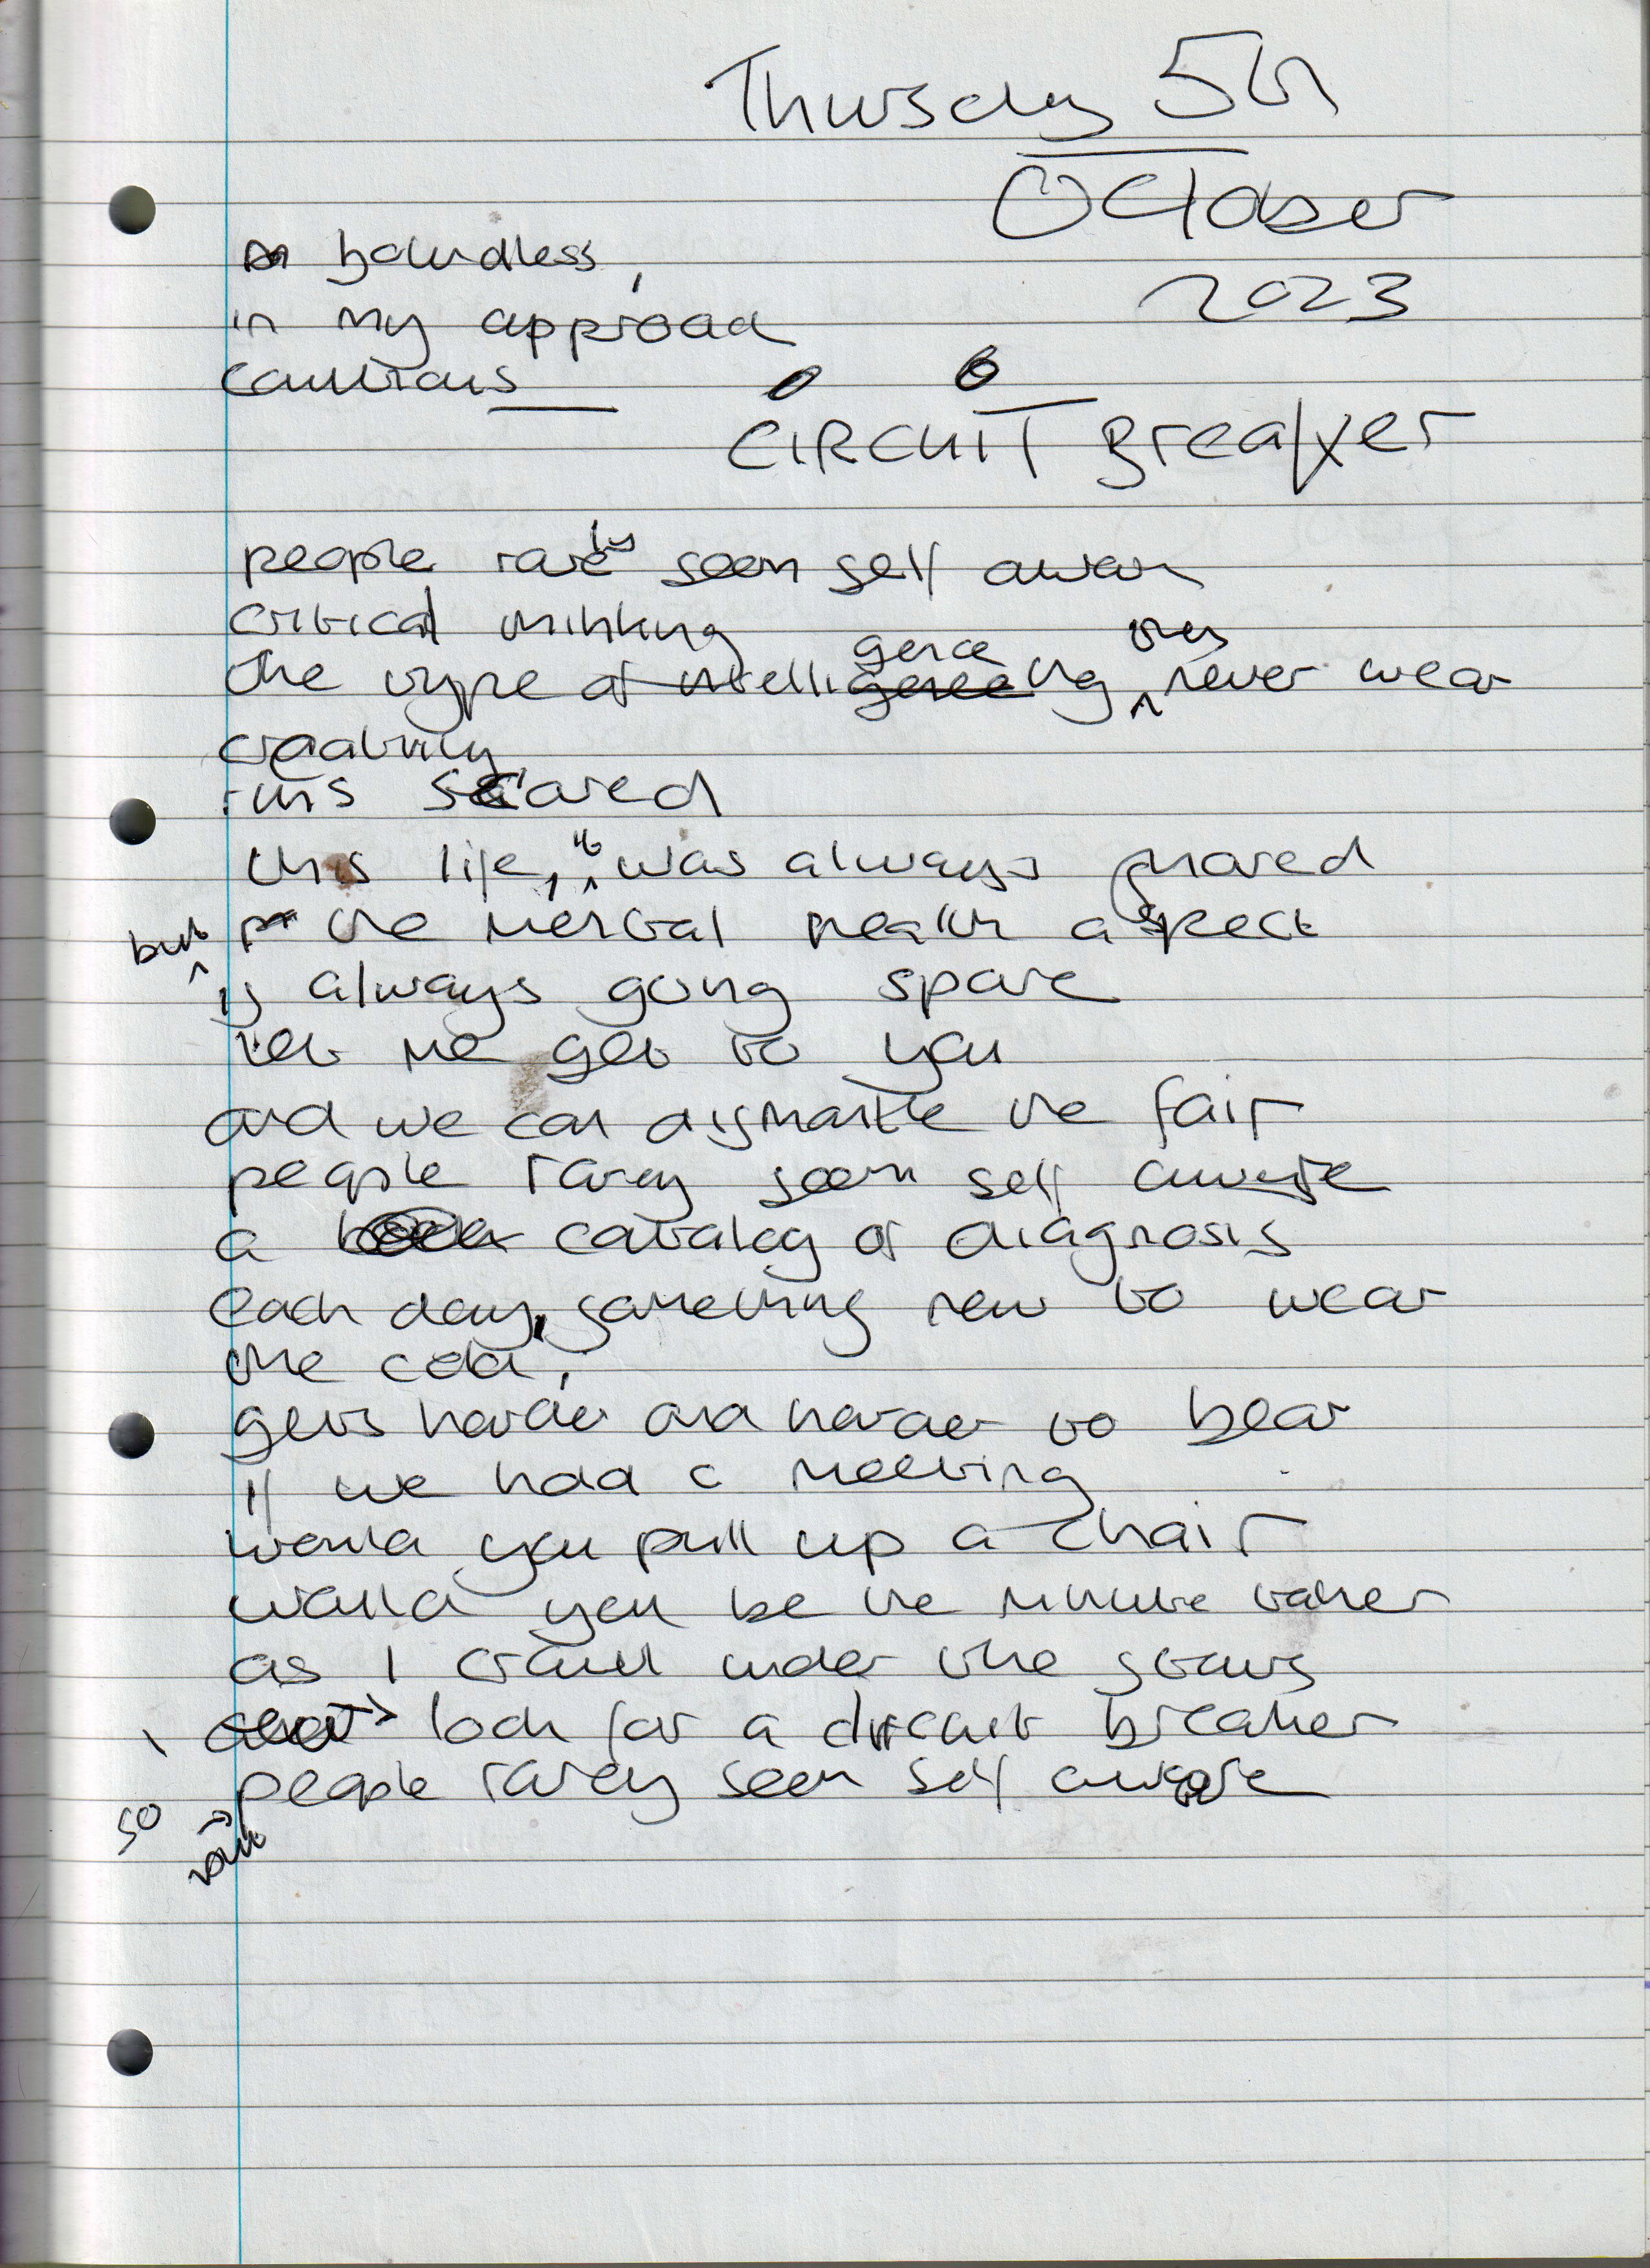 Thursday 5th
October
2023
boundless,
in my approach
cautious
CIRCUIT Breaker
people rarely seem self aware
critical thinking
the type of intelligence they never wear
creativity,
runs scared
this life, it was always shared
but the mental health aspect
is always going spare
let me get to you
and we can dismantle the fair
people rarely seem self aware
a catalog of diagnosis
each day, something new to wear
the cold,
gets harder and harder to bear
if we had a meeting
would you pull up a chair
would you be the minute taker
as I crawl under the stairs
look for a circuit breaker
people rarely seem self aware
so